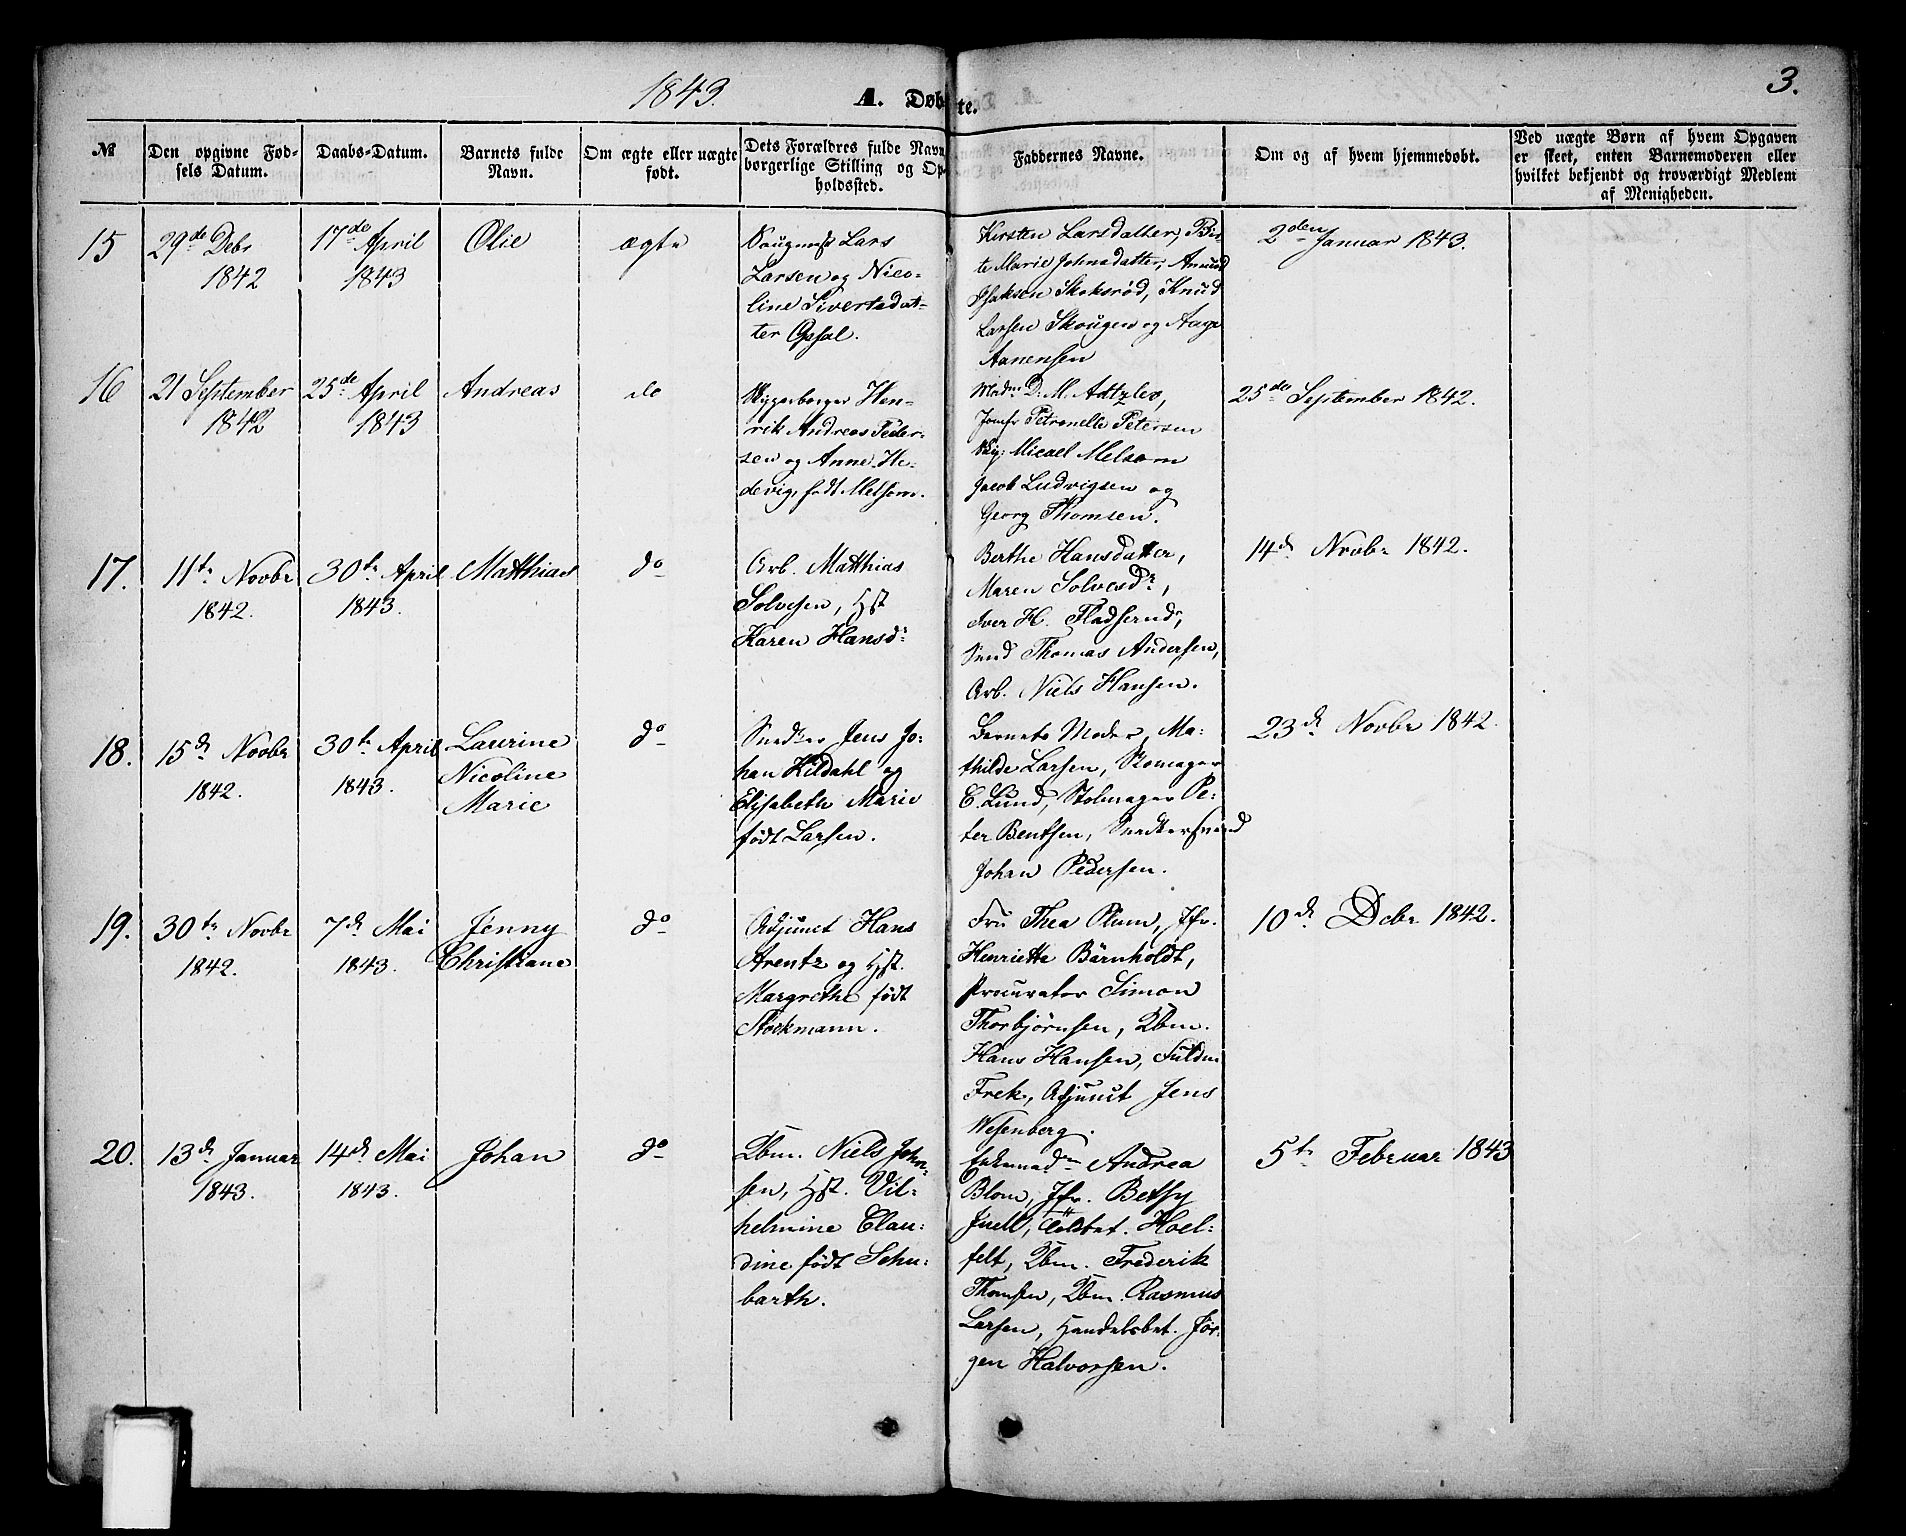 1843.
A. Døbte.
3.
№
Den opgivne Fød-
sels Datum.
Daabs-Datum.
Barnets fulde
Navn.
Om ægte eller uægte
født.
Dets Forældres fulde Navn
borgerlige Stilling og Op-
holdssted.
Faddernes Navne.
Om og af hvem hjemmedøbt.
Ved uægte Børn af hvem Opgaven
er skeet, enten Barnemoderen eller
hvilket bekjendt og troværdigt Medlem
af Menigheden.
15
29de Debr
1842
17de April
1843
Olie
ægte
Lars
Larsen og Nico-
line Sivertsdat-
ter Opsal.
Kirsten Larsdatter, Bir-
te Marie Johnsdatter, Amund
Isaksen Skoksrød, Knud
Larsen Skougen og Aage
Aanensen
2den Januar 1843.
16
21 September
1842
25de April
1843
Andreas
do
Skipperborger Hen-
rik Andreas Peder-
sen og Anne He-
devig, født Melsom.
Madm D. M. Adtzlev,
Jomfr Petronelle Petersen
Skip: Micael Melsom
Jacob Ludvigsen og
Georg Thomsen.
25de September 1842.
17.
11te Novbr
1842.
30te April
1843.
Matthias
do
Arb. Matthias
Solvesen, Hst
Karen Hansdr
Berthe Hansdatter,
Maren Solvesdr,
Iver H. Fladserud,
Svend Thomas Andersen,
Arb. Niels Hansen.
14d Novbr 1842.
18.
15d Novbr
1842.
30te April
1843.
Laurine
Nicoline
Marie
do
Snedker Jens Jo-
han Kildahl og
Elisabeth Marie
født Larsen.
Barnets Moder, Ma-
thilde Larsen, Skomager
C. Lund, Stolmager Pe-
ter Bentsen, Snedkersvend
Johan Pedersen.
23d Novbr 1842.
19.
30te Novbr
1842.
7d Mai
1843.
Jenny
Christiane
do
Adjunct Hans
Arentz og Hst.
Margrethe født
Stockmann.
Fru Thea Plum, Jfr.
Henriette Bärnholdt,
Procurator Simon
Thorbjørnsen, Qbm.
Hans Hansen, Fuldm
Frek, Adjunct Jens
Wesenberg.
10d Debr 1842.
20.
13d Januar
1843.
14d Mai
1843.
Johan
do
Qbm. Niels John-
sen, Hst. Vil-
helmine Clau-
dine født Schu-
barth.
Enkemadm Andrea
Blom, Jfr. Betsy
Juell, Toldbet. Hoel-
felt, Qbm. Frederik
Thomsen, Qbm. Rasmus
Larsen, Handelsbet. Jør-
gen Halvorsen.
5te Februar 1843